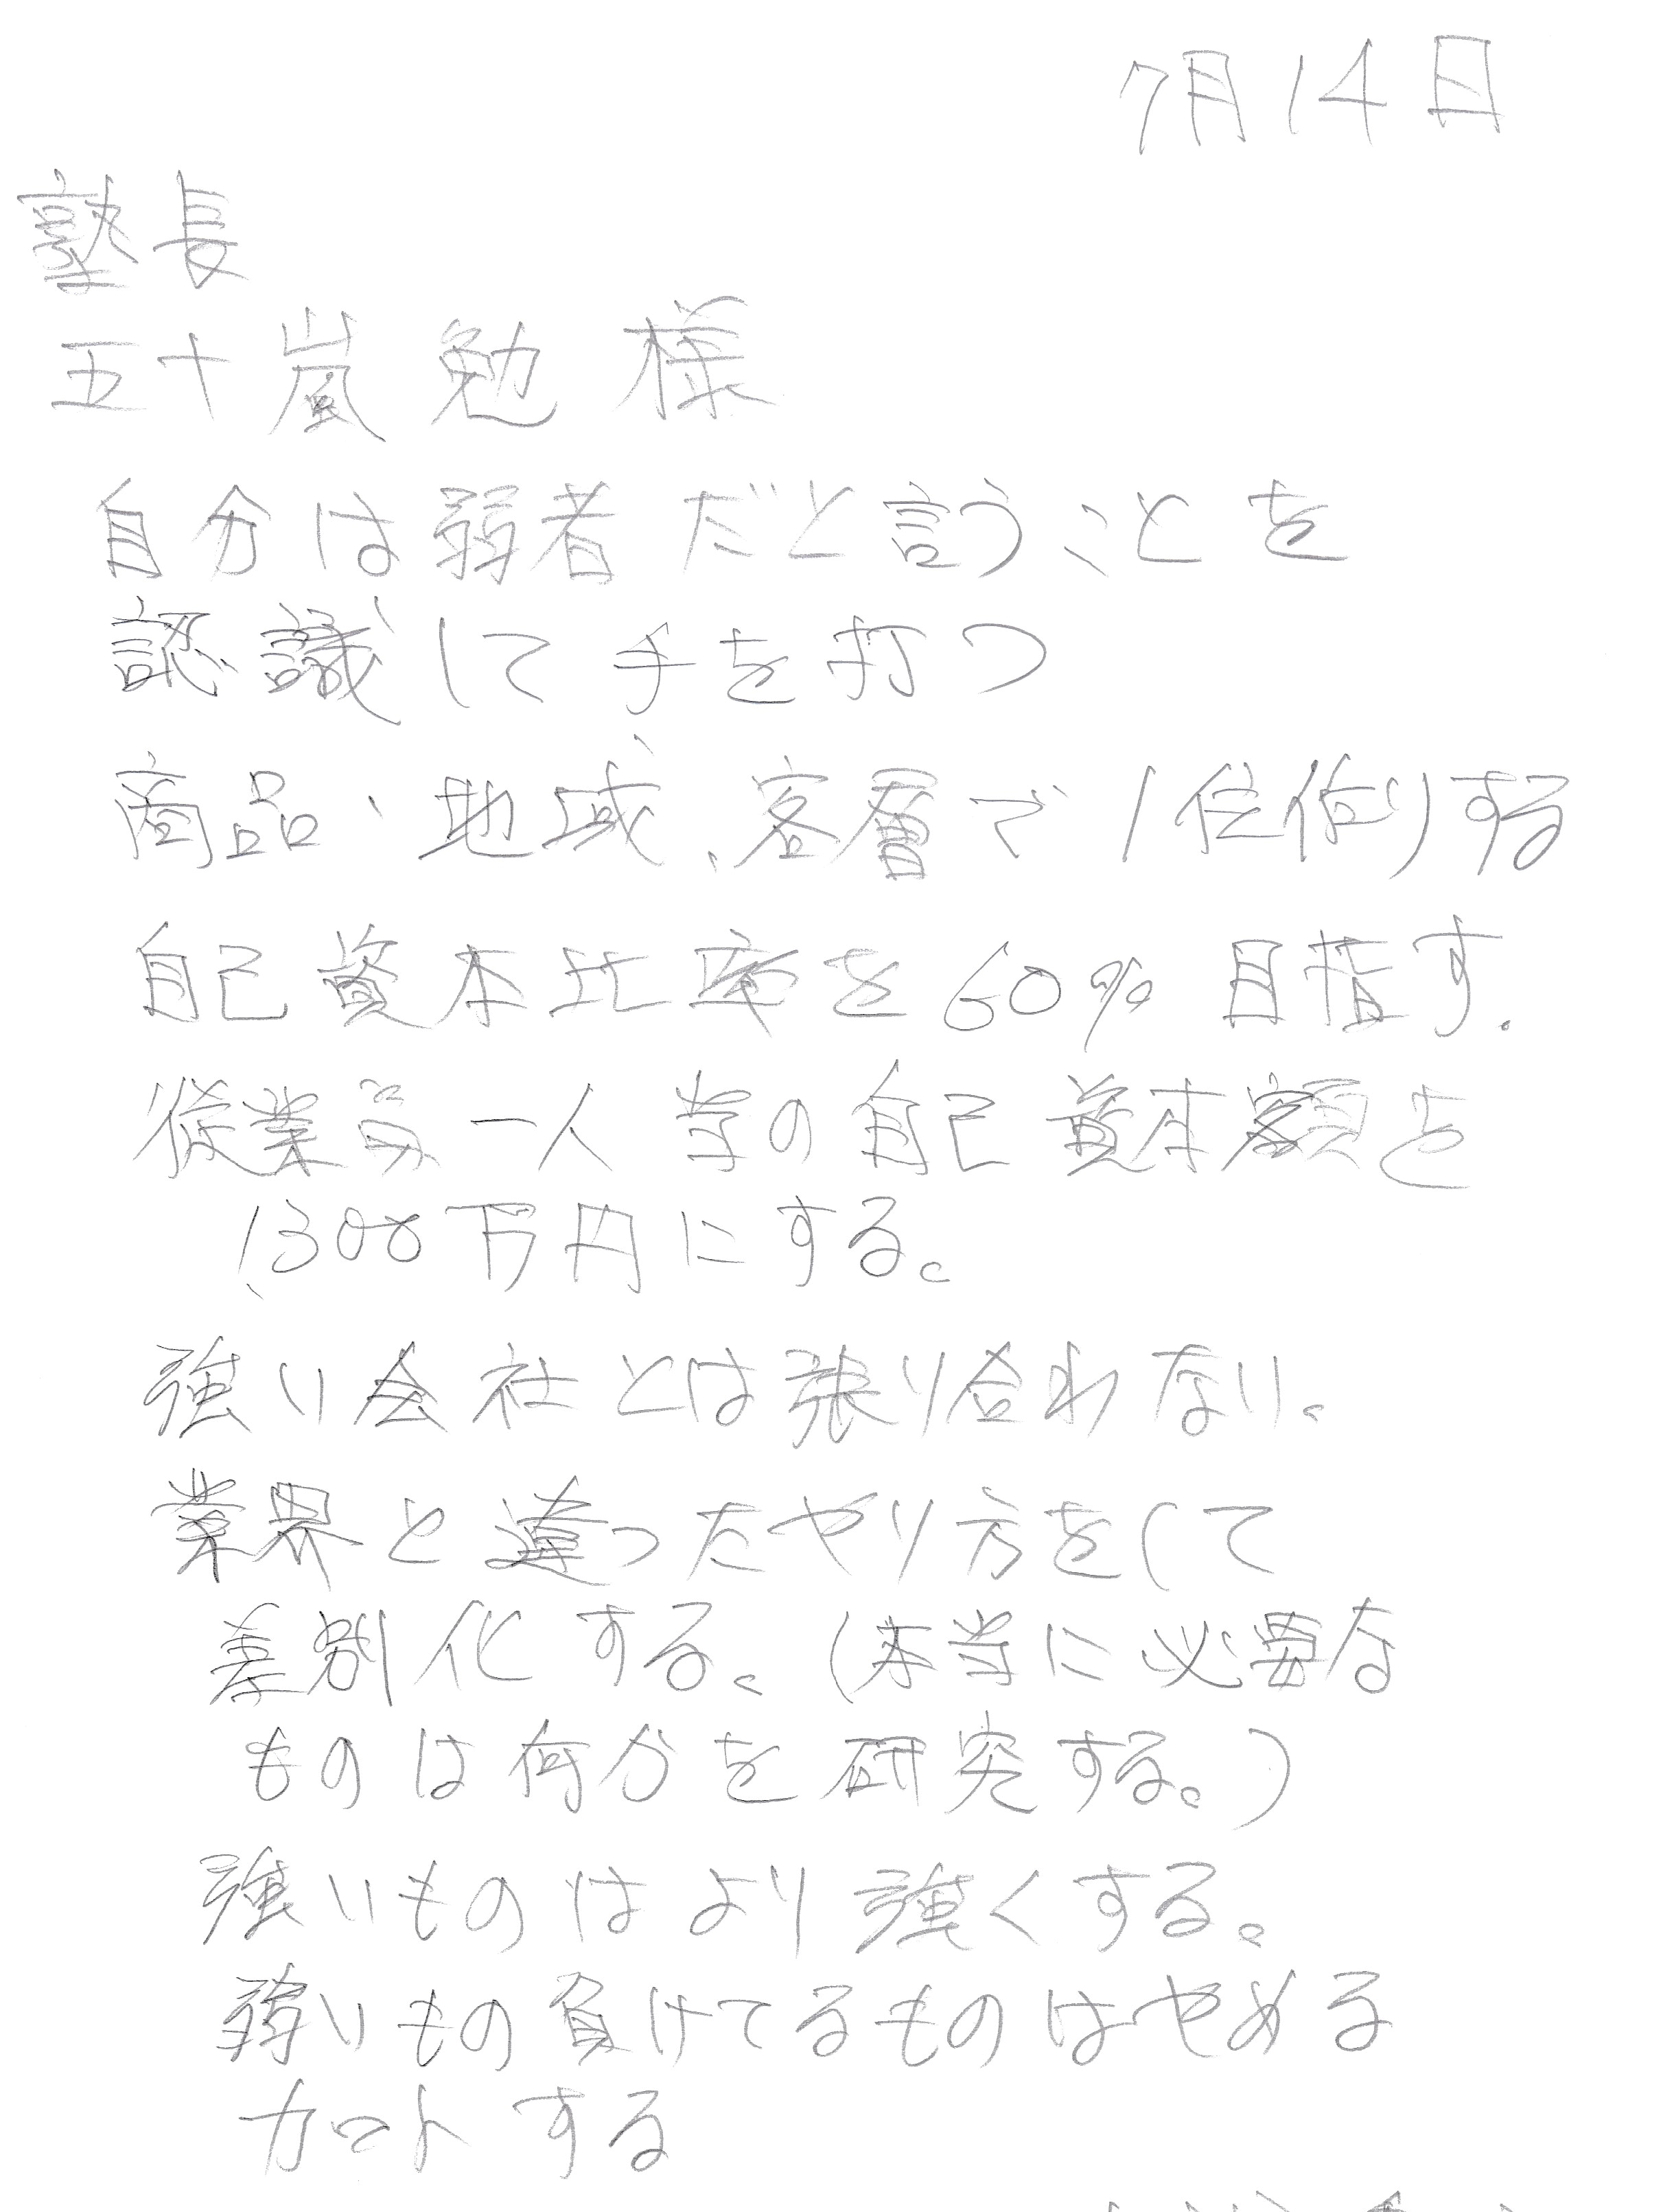 7月14日
塾長
五十嵐勉様
自分は弱者だと言うことを
認識して手を打つ
商品、地域、客層で1位作りする
自己資本比率を60% 目指す.
従業員一人当の自己資本額を
1,300万円にする。
強い会社とは張り合わない。
業界と違ったやり方をして
差別化する。(本当に必要な
ものは何かを研究する。)
強いものはより強くする。
弱いもの負けてるものはやめる
カットする